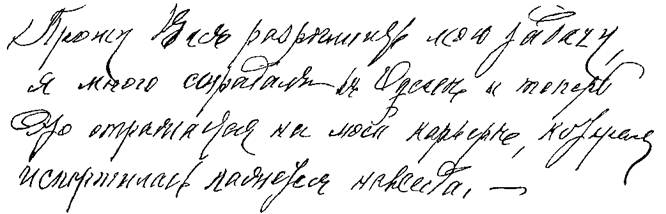 Прошу Вас разрешить мою задачу,
я много страдал в Одессе, и теперь
это отражается на моей карьере, которая
испортилась кажется навсегда. —